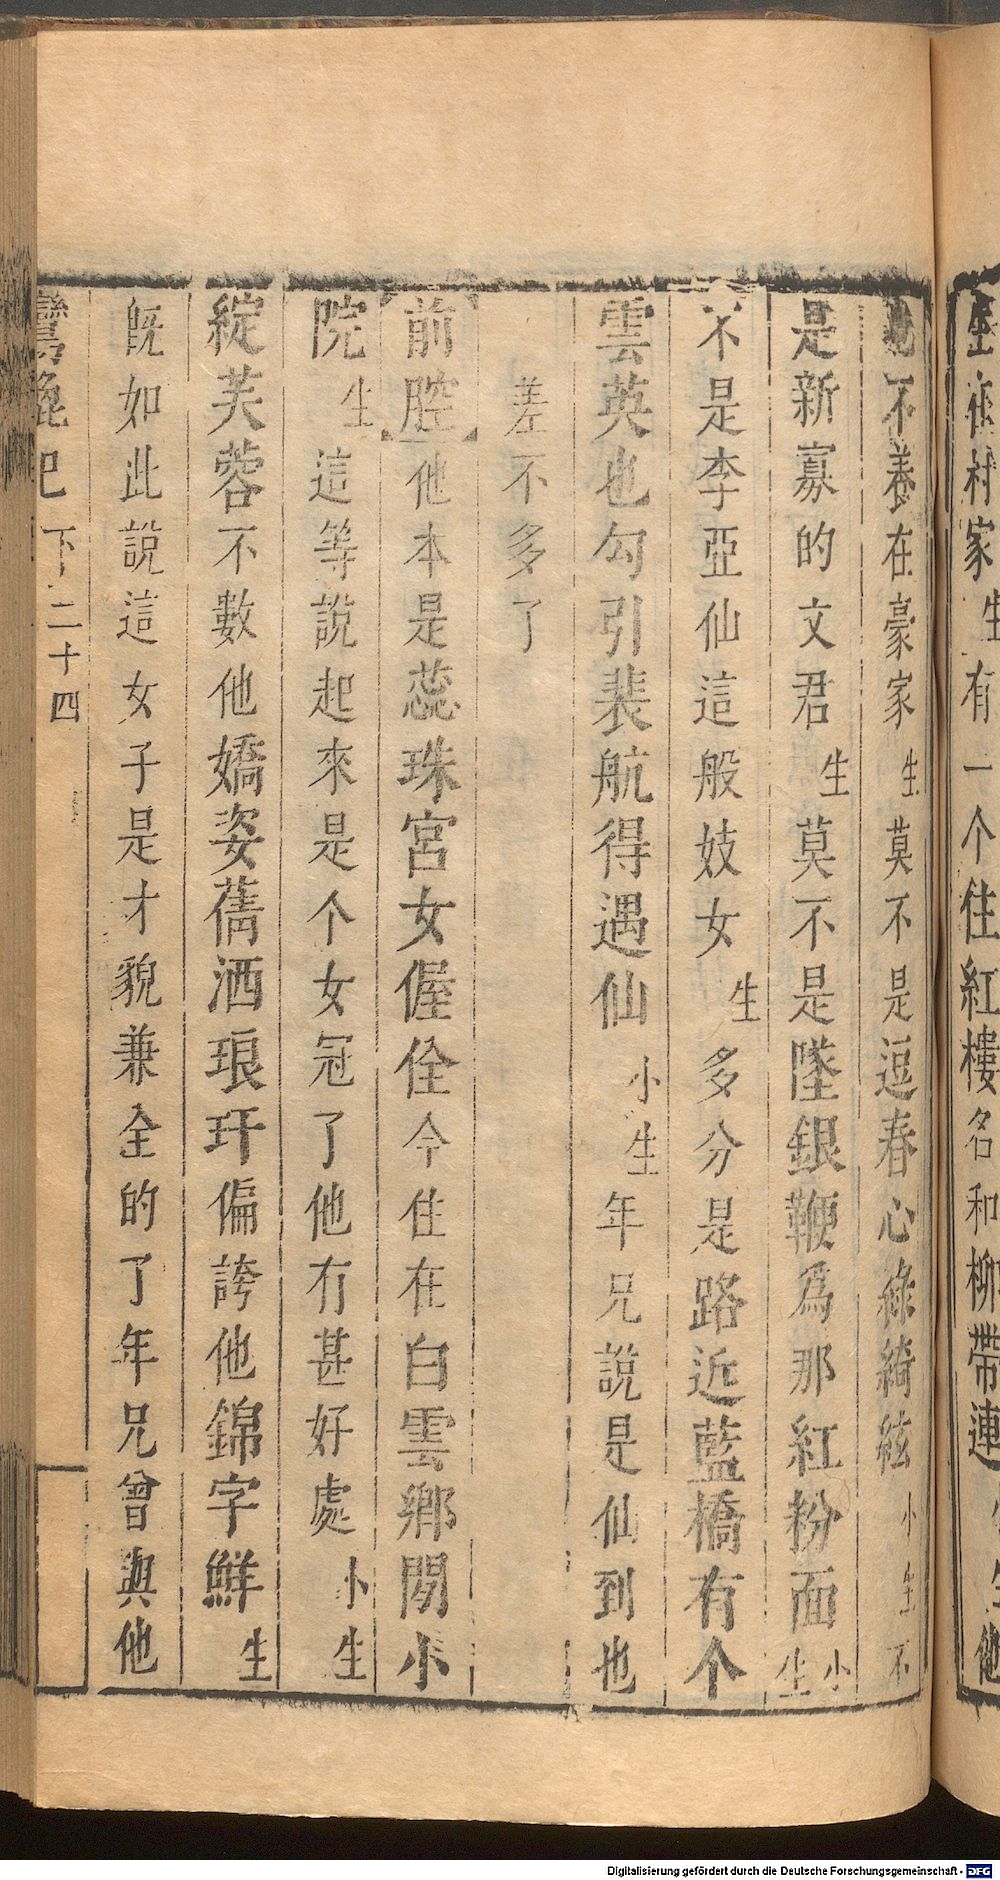 村家生有一个住紅樓名和柳帶連
不養在豪家生莫不是逗春心綠綺絃小生不
是新寡的文君生莫不是墜銀鞭為那紅粉面小生
不是李亞仙這般妓女生多分是路近藍橋有个
雲英也勾引裴航得遇仙小生年兄說是仙到也
差不多了
前腔他本是蕊珠宮女偓佺今住在白雲鄉閒小
院生這等說起來是个女冠了他有甚好處小生
綻芙蓉不數他嬌姿蒨洒琅玕偏誇他錦字鮮生
既如此說這女子是才貌兼全的了年兄曾與他
鴛鴦記 下 二十四
Digitalisierung gefördert durch die Deutsche Forschungsgemeinschaft - DFG